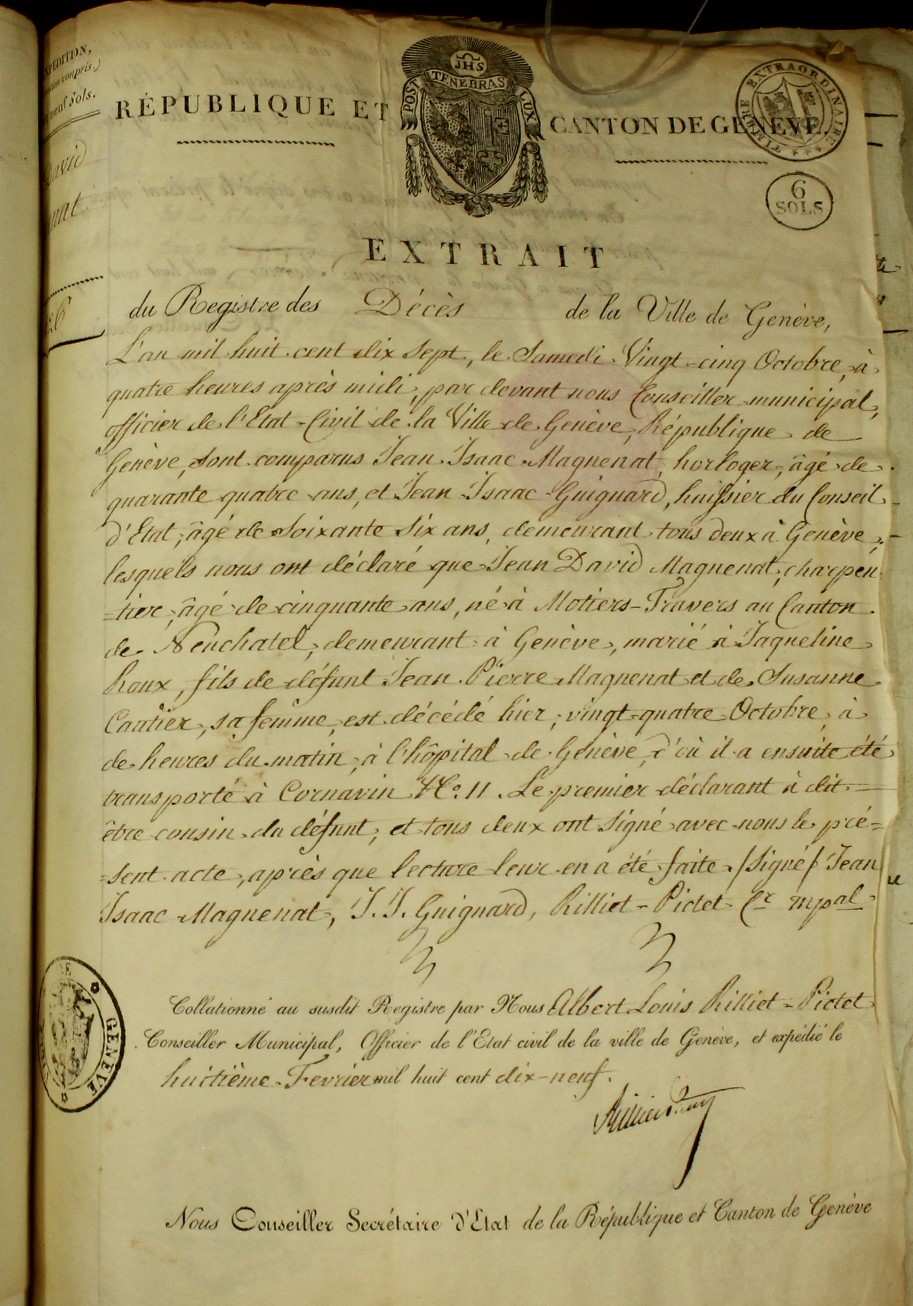 RÉPUBLIQUE ET CANTON DE GENÈVE.
POST TENEBRAS LUX
JHS
TIMBRE EXTRAORDINAIRE
6
SOLS
EXTRAIT
du Registre des Décès de la Ville de Genève,
L'an mil huit cent dix sept, le Samedi Vingt-cinq Octobre, à
quatre heures après midi, par devant nous Conseiller municipal,
officier de l'Etat-Civil de la Ville de Genève, République de
Genève, sont comparus Jean Isaac Magnenat, horloger, âgé de
quarante quatre ans, et Jean Isaac Guignard, huissier du Conseil
d'Etat, âgé de Soixante Six ans, demeurant tous deux à Genève,
lesquels nous ont déclaré que Jean David Magnenat, charpen-
-tier, âgé de cinquante ans, né à Motiers-Travers au Canton
de Neuchatel, demeurant à Genève, marié à Jaqueline
Roux, fils de défunt Jean Pierre Magnenat et de Susanne
sa femme, est décédé hier, vingt-quatre Octobre, à
de heures du matin, à l'hôpital de Genève, d'où il a ensuite été
transporté à Cornavin No. 11. Le premier déclarant à dit
être cousin du défunt, et tous deux ont signé avec nous le pré=
=sent acte, après que lecture leur en a été faite. /Signé/ Jean
Isaac Magnenat, J. J. Guignard, Rilliet-Pictet Cr. mpal.
Collationné au susdit Registre par Nous Albert Louis Rilliet-Pictet
Conseiller Municipal, Officier de l'Etat civil de la ville de Genève, et expédié le
huitième Fevrier mil huit cent dix-neuf.
GENEVE
Nous Conseiller Secrétaire d'Etat de la République et Canton de Genève